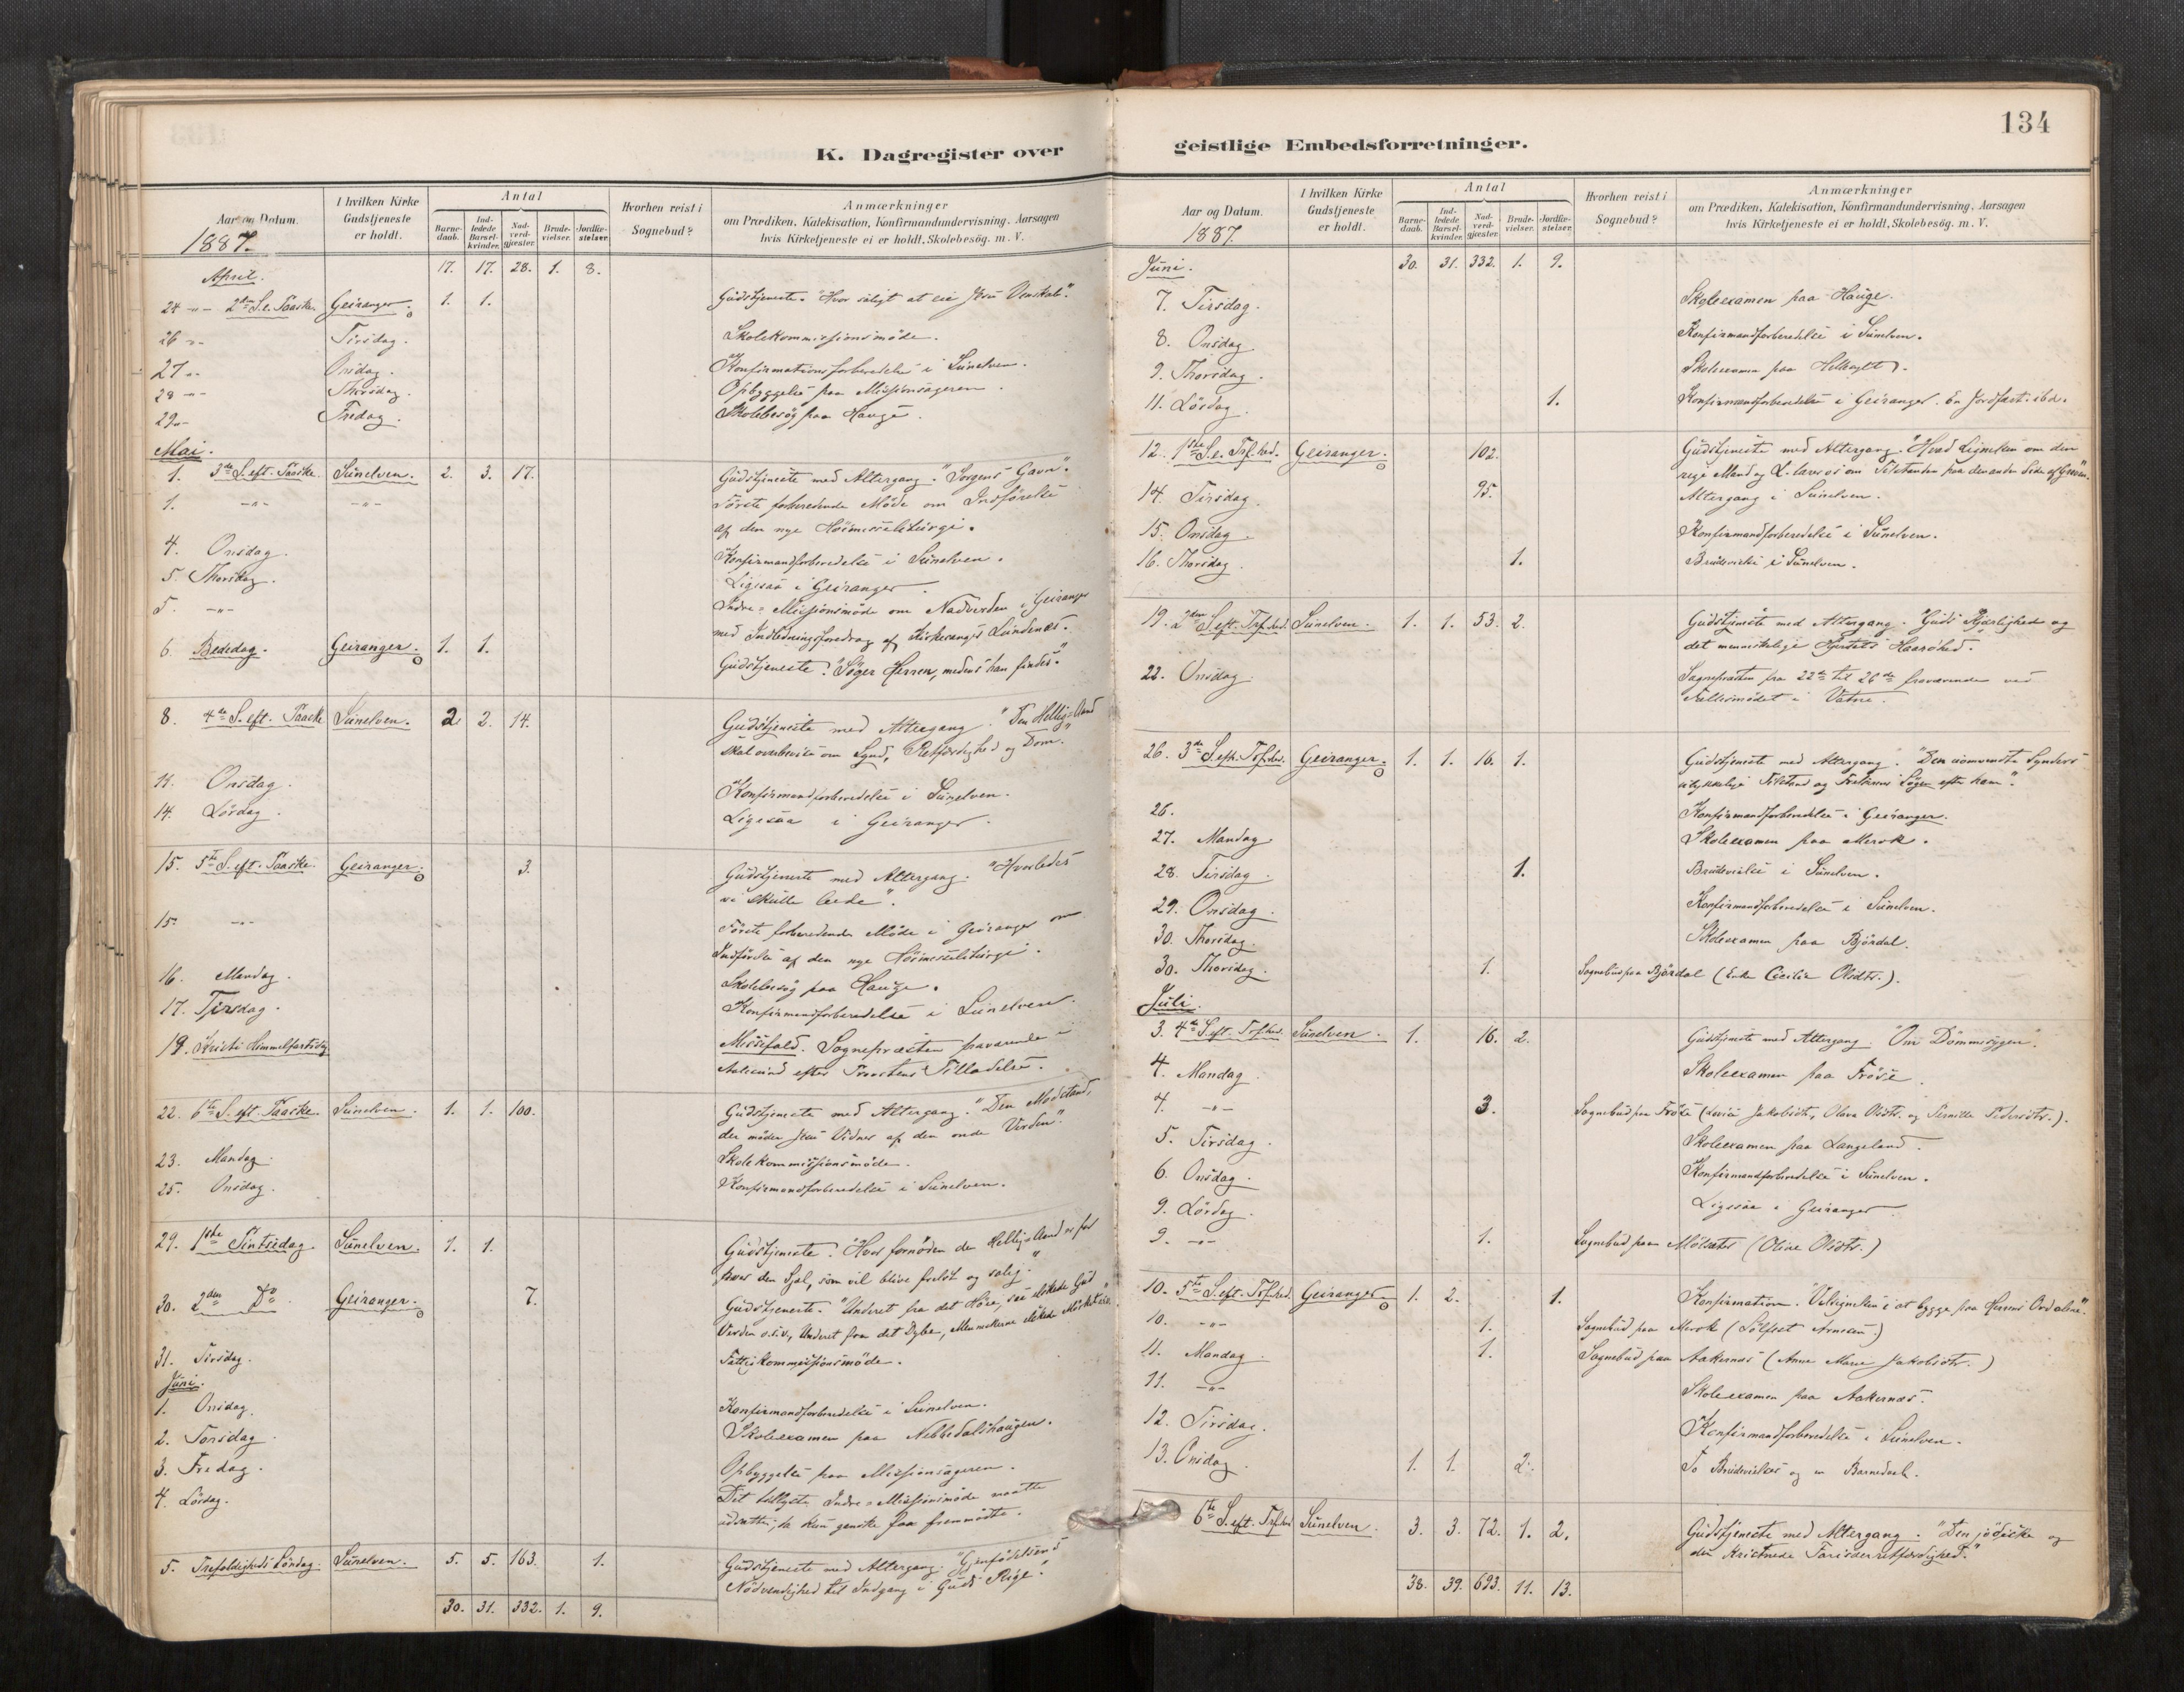 134
K. Dagregister over
Aar og Datum.
1887.
I hvilken Kirke Gudstjeneste er holdt.
Antal
Barnedaab. Indledede Barselkvinder. Nadverdgjæster. Brudevielser. Jordfæstelser.
Hvorhen reist i Sognebud?
Anmærkninger
om Prædiken, Katekisation, Konfirmandundervisning, Aarsagen
hvis Kirketjeneste ei er holdt, Skolebesög. m. V.
April. 17. 17. 28. 1. 8.
24 -"- 2den S. e. Paaske. Geiranger. 1. 1. Gudstjeneste. "Hvor saligt at eie Jesu Venskab".
26 -"- Tirsdag. Skolekommissionsmöde.
27 -"- Onsdag. Konfirmationsforberedelse i Sunelven.
28 -"- Thorsdag. Opbyggelse paa Missionsageren.
29 -"- Fredag. Skolebesög paa Hauge.
Mai.
1. 3de S. eft. Paaske Sunelven. 2. 3. 17. Gudstjeneste med Altergang. "Sorgens Gavn".
1. -"- -"- Förste forberedende Möde om Indförelse
af den nye Höimesseliturgi.
4. Onsdag. Konfirmandforberedelse i Sunelven.
5. Thorsdag. Ligesaa i Geiranger.
5. -"- Indre-Missionsmöde om Nadverden i Geiranger
med Indledningsforedrag af Kirkesanger Lundenæs.
6. Bededag. Geiranger. 1. 1. Gudstjeneste. "Söger Herren, medens han findes".
8. 4de S. eft. Paaske Sunelven. 2. 2. 14. Gudstjeneste med Altergang. "Den Hellig-Aand
skal overbevise om Synd, Retfærdighed og Dom."
11. Onsdag. Konfirmandforberedelse i Sunelven.
14. Lördag. Ligesaa i Geiranger.
15. 5te S. eft. Paaske. Geiranger. 3. Gudstjeneste med Altergang. "Hvorledes
vi skulle bede".
15. -"- Förste forberedende Möde i Geiranger om
Indförelse af den nye Höimesseliturgi.
16. Mandag. Skolebesög paa Hauge.
17. Tirsdag. Konfirmandforberedelse i Sunelven.
19. Kristi Himmelfartsdag Messefald. Sognepræsten fraværende i
Aalesund efter Provstens Tilladelse.
22. 6te S. eft. Paaske. Sunelven. 1. 1. 100. Gudstjeneste med Altergang. "Den Modstand,
der möder Jesu Vidner af den onde Verden".
23. Mandag. Skolekommissionsmöde.
25. Onsdag. Konfirmandforberedelse i Sunelven.
29. 1ste Pintsedag. Sunelven. 1. 1. Gudstjeneste. "Hvor fornöden den Hellig-Aand er for
hver den Sjæl, som vil blive frelst og salig."
30. 2den Do. Geiranger. 7. Gudstjeneste. "Underet fra det Höie, saa elskede Gud
Verden o.s.v., Underet fra det Dybe, Menneskerne elskede Mörket
31. Tirsdag. Fattigkommissionsmöde.
Juni.
1. Onsdag. Konfirmandforberedelse i Sunelven.
2. Torsdag. Skoleexamen paa Nebbedalshaugen.
3. Fredag. Opbyggelse paa Missionsageren.
4. Lördag. Det tillyste Indre-Missionsmöde maatte
udsættes, da kun ganske faa fremmödte.
5. Trefoldigheds Söndag. Sunelven. 5. 5. 163. 1. Gudstjeneste med Altergang. "Gjenfödelsens
Nödvendighed til Indgang i Guds Rige."
30. 31. 332. 1. 9.
geistlige Embedsforretninger.
Aar og Datum.
1887.
I hvilken Kirke Gudstjeneste er holdt.
Antal
Barnedaab. Indledede Barselkvinder. Nadverdgjæster. Brudevielser. Jordfæstelser.
Hvorhen reist i Sognebud?
Anmærkninger
om Prædiken, Katekisation, Konfirmandundervisning, Aarsagen
hvis Kirketjeneste ei er holdt, Skolebesög. m. V.
Juni. 30. 31. 332. 1. 9.
7. Tirsdag. Skoleexamen paa Hauge.
8. Onsdag Konfirmandforberedelse i Sunelven.
9. Thorsdag. Skoleexamen paa Hellesylt.
11. Lördag. 1. Konfirmandforberedelse i Geiranger. En Jordfæst. ibd.
12. 1ste S. e. Trf.hed. Geiranger. 102. Gudstjeneste med Altergang. "Hvad Lignelsen om den
rige Mand og L. lærer os om Tilstanden paa den anden Side af Graven".
14. Tirsdag. 95. Altergang i Sunelven.
15. Onsdag. Konfirmandforberedelse i Sunelven.
16. Thorsdag. 1. Brudevielse i Sunelven.
19. 2den S. eft. Trf.hed. Sunelven. 1. 1. 53. 2. Gudstjeneste med Altergang. "Guds Kjærlighed og
det menneskelige Hjertes Haardhed."
22. Onsdag. Sognepræsten fra 22de til 26de fraværende ved
Fællesmödet i Vatne.
26. 3de S. eft. Trf.hed. Geiranger. 1. 1. 16. 1. Gudstjeneste med Altergang. "Den uomvendte Synders
ulykkelige Tilstand og Frelserens Sögen efter ham".
26. Konfirmandforberedelse i Geiranger.
27. Mandag. Skoleexamen paa Merok.
28. Tirsdag. 1. Brudevielse i Sunelven.
29. Onsdag. Konfirmandforberedelse i Sunelven.
30. Thorsdag. Skoleexamen paa Björdal.
30. Thorsdag. 1. Sognebud paa Björdal (Enke Cicilie Olsdtr.).
Juli.
3. 4de S. eft. Trf.hed. Sunelven. 1. 16. 2. Gudstjeneste med Altergang. "Om Dömmesygen".
4. Mandag. Skoleexamen paa Fröse.
4. -"- 3. Sognebud paa Fröse (Lovise Jakobsdtr., Olava Olsdtr. og Pernille Pedersdtr.).
5. Tirsdag. Skoleexamen paa Langeland.
6. Onsdag. Konfirmandforberedelse i Sunelven.
9. Lördag. Ligesaa i Geiranger.
9. -"- 1. Sognebud paa Mölsæter (Oline Olsdtr.)
10. 5te S. eft. Trf.hed. Geiranger. 1. 2. 1. Konfirmation. "Velsignelsen i at bygge paa Herrens Ord alene".
10. -"- 1. Sognebud paa Merok (Sölfest Arnesen.)
11. Mandag. 1. Sognebud paa Aakernæs (Anne Marie Jakobsdtr.)
11. -"- Skoleexamen paa Aakernæs.
12. Tirsdag. Konfirmandforberedelse i Sunelven.
13. Onsdag. 1. 1. 2. To Brudevielser og en Barnedaab.
6te S. eft. Trf.hed Sunelven. 3. 3. 72. 1. 2. Gudstjeneste med Altergang. "Den jödiske og
den kristnede Farisæerretfærdighed."
38. 39. 693. 11. 13.